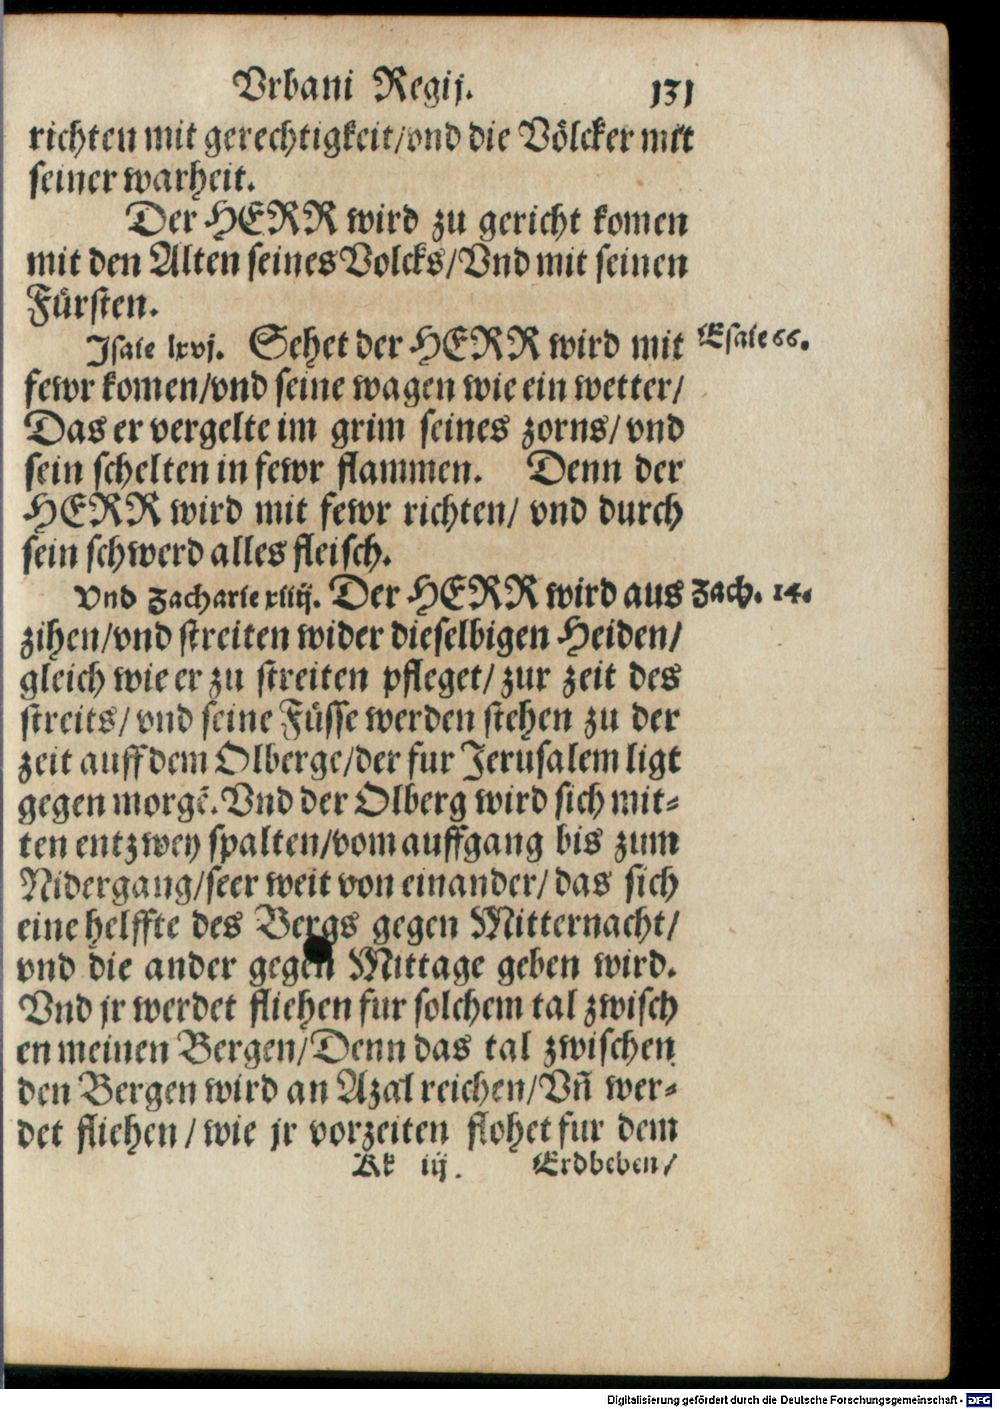 Vrbani Regij. 131
richten mit gerechtigkeit/vnd die Völcker mit
seiner warheit.
Der HERR wird zu gericht komen
mit den Alten seines Volcks/Vnd mit seinen
Fürsten.
Jsaie lxvj. Sehet der HERR wird mit Esaie 66.
fewr komen/vnd seine wagen wie ein wetter/
Das er vergelte im grim seines zorns/ vnd
sein schelten in fewr flammen. Denn der
HERR wird mit fewr richten/ vnd durch
sein schwerd alles fleisch.
Vnd Zacharie xiiij. Der HERR wird aus Zach. 14.
zihen/vnd streiten wider dieselbigen Heiden/
gleich wie er zu streiten pfleget/ zur zeit des
streits/ vnd seine Füsse werden stehen zu der
zeit auff dem Olberge/der fur Jerusalem ligt
gegen morgẽ. Vnd der Olberg wird sich mit-
ten entzwey spalten/vom auffgang bis zum
Nidergang/seer weit von einander/ das sich
eine helffte des Bergs gegen Mitternacht/
vnd die ander gegen Mittage geben wird.
Vnd jr werdet fliehen fur solchem tal zwisch
en meinen Bergen/Denn das tal zwischen
den Bergen wird an Azal reichen/Vñ wer-
det fliehen/ wie jr vorzeiten flohet fur dem
Kk iij. Erdbeben/
Digitalisierung gefördert durch die Deutsche Forschungsgemeinschaft - DFG